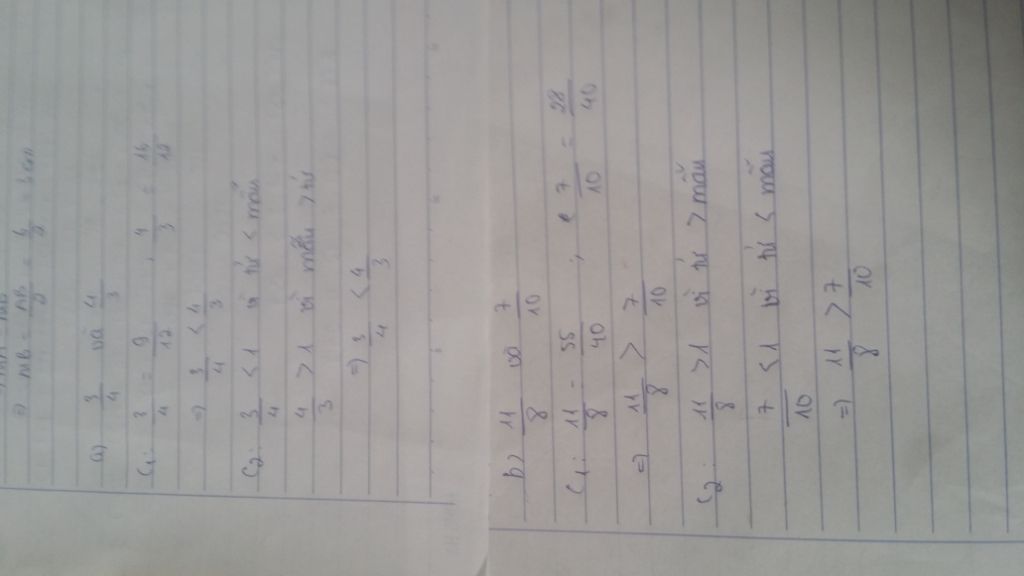 =) MB = AB/2 = 6/2 = 3 cm
a) 3/4 và 4/3
C1: 3/4 = 9/12 , 4/3 = 16/12
=) 3/4 < 4/3
C2: 3/4 < 1 vì tử < mẫu
4/3 > 1 vì mẫu > tử
=) 3/4 < 4/3
b) 11/8 và 7/10
C1: 11/8 = 55/40 ; 7/10 = 28/40
=) 11/8 > 7/10
C2: 11/8 > 1 vì tử > mẫu
7/10 < 1 vì tử < mẫu
=) 11/8 > 7/10